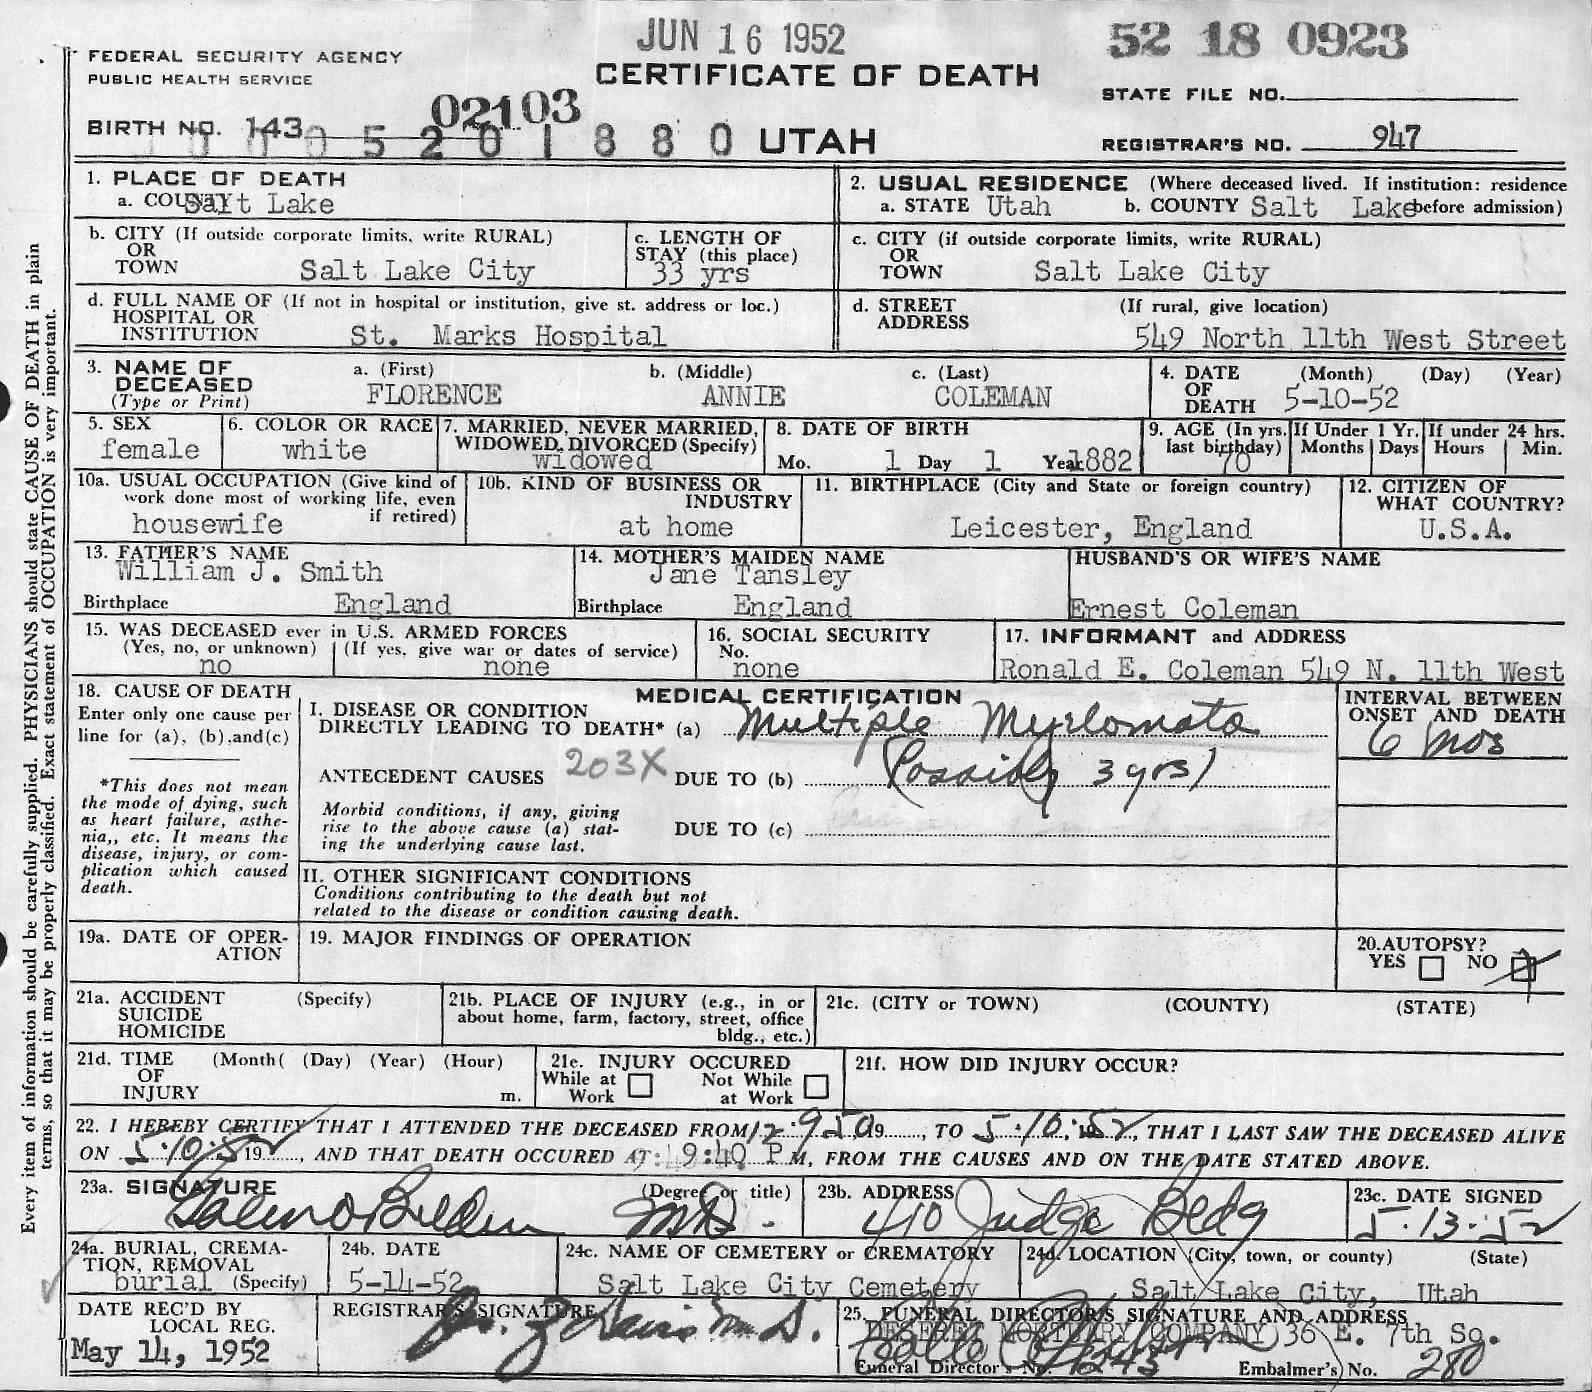 JUN 16 1952
52 18 0923
FEDERAL SECURITY AGENCY
PUBLIC HEALTH SERVICE
CERTIFICATE OF DEATH
STATE FILE NO.
02103
BIRTH NO. 143
05201880
UTAH
REGISTRAR'S NO. 947
Every item of information should be carefully supplied. PHYSICIANS should state CAUSE OF DEATH in plain
terms, so that it may be properly classified. Exact statement of OCCUPATION is very important.
1. PLACE OF DEATH
a. COUNTY Salt Lake
2. USUAL RESIDENCE (Where deceased lived. If institution: residence
a. STATE Utah b. COUNTY Salt Lake before admission)
b. CITY (If outside corporate limits, write RURAL)
OR
TOWN Salt Lake City
c. LENGTH OF
STAY (this place)
33 yrs
c. CITY (if outside corporate limits, write RURAL)
OR
TOWN Salt Lake City
d. FULL NAME OF (If not in hospital or institution, give st. address or loc.)
HOSPITAL OR
INSTITUTION St. Marks Hospital
d. STREET (If rural, give location)
ADDRESS
549 North 11th West Street
3. NAME OF a. (First) b. (Middle) c. (Last)
DECEASED
(Type or Print) FLORENCE ANNIE COLEMAN
4. DATE (Month) (Day) (Year)
OF
DEATH 5-10-52
5. SEX
female
6. COLOR OR RACE
white
7. MARRIED, NEVER MARRIED,
WIDOWED, DIVORCED (Specify)
widowed
8. DATE OF BIRTH
Mo. 1 Day 1 Year 1882
9. AGE (In yrs.
last birthday)
70
If Under 1 Yr.
Months Days
If under 24 hrs.
Hours Min.
10a. USUAL OCCUPATION (Give kind of
work done most of working life, even
if retired)
housewife
10b. KIND OF BUSINESS OR
INDUSTRY
at home
11. BIRTHPLACE (City and State or foreign country)
Leicester, England
12. CITIZEN OF
WHAT COUNTRY?
U.S.A.
13. FATHER'S NAME
William J. Smith
Birthplace England
14. MOTHER'S MAIDEN NAME
Jane Tansley
Birthplace England
HUSBAND'S OR WIFE'S NAME
Ernest Coleman
15. WAS DECEASED ever in U.S. ARMED FORCES
(Yes, no, or unknown) (If yes, give war or dates of service)
no none
16. SOCIAL SECURITY
No.
none
17. INFORMANT and ADDRESS
Ronald E. Coleman 549 N. 11th West
18. CAUSE OF DEATH
Enter only one cause per
line for (a), (b), and (c)
*This does not mean
the mode of dying, such
as heart failure, asthe-
nia,, etc. It means the
disease, injury, or com-
plication which caused
death.
MEDICAL CERTIFICATION
I. DISEASE OR CONDITION
DIRECTLY LEADING TO DEATH* (a) Multiple Myelomata
ANTECEDENT CAUSES 203X DUE TO (b) (Possibly 3 yrs)
Morbid conditions, if any, giving
rise to the above cause (a) stat-
ing the underlying cause last.
DUE TO (c)
II. OTHER SIGNIFICANT CONDITIONS
Conditions contributing to the death but not
related to the disease or condition causing death.
INTERVAL BETWEEN
ONSET AND DEATH
6 mos
19a. DATE OF OPER-
ATION
19. MAJOR FINDINGS OF OPERATION
20. AUTOPSY?
YES NO
21a. ACCIDENT (Specify)
SUICIDE
HOMICIDE
21b. PLACE OF INJURY (e.g., in or
about home, farm, factory, street, office
bldg., etc.)
21c. (CITY or TOWN) (COUNTY) (STATE)
21d. TIME (Month( (Day) (Year) (Hour)
OF
INJURY m.
21e. INJURY OCCURED
While at Not While
Work at Work
21f. HOW DID INJURY OCCUR?
22. I HEREBY CERTIFY THAT I ATTENDED THE DECEASED FROM 12.9.50 19, TO 5.10.52, THAT I LAST SAW THE DECEASED ALIVE
ON 5.10.52 19, AND THAT DEATH OCCURED AT 9:40 P M, FROM THE CAUSES AND ON THE DATE STATED ABOVE.
23a. SIGNATURE (Degree or title)
MD.
23b. ADDRESS
410 Judge Bldg
23c. DATE SIGNED
5.13.52
24a. BURIAL, CREMA-
TION, REMOVAL
burial (Specify)
24b. DATE
5-14-52
24c. NAME OF CEMETERY or CREMATORY
Salt Lake City Cemetery
24d. LOCATION (City, town, or county) (State)
Salt Lake City, Utah
DATE REC'D BY
LOCAL REG.
May 14, 1952
REGISTRAR'S SIGNATURE
M.D.
25. FUNERAL DIRECTOR'S SIGNATURE AND ADDRESS
DESERET MORTUARY COMPANY 36 E. 7th So.
Funeral Director's No. 1243 Embalmer's No. 280